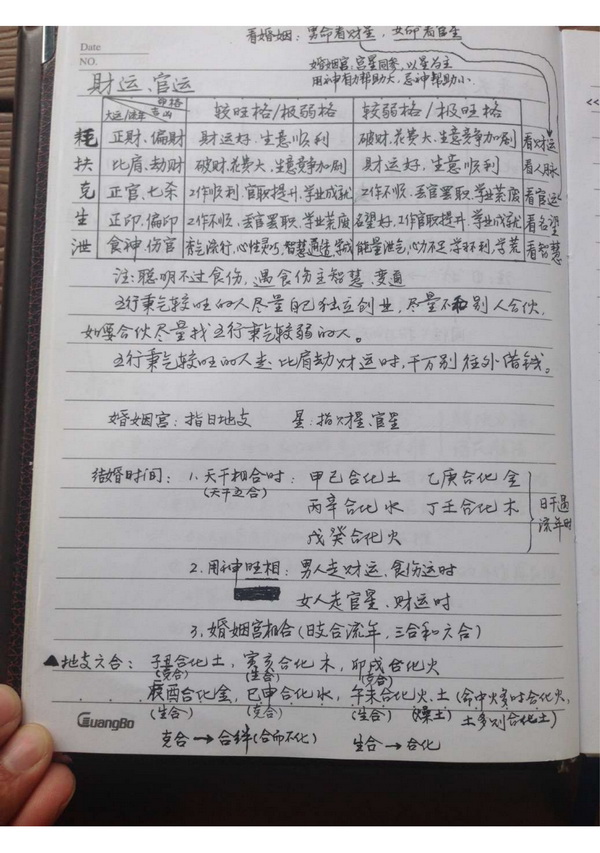 看婚姻：男命看财星，女命看官星
Date
NO.
婚姻宫：宫星同参，以星为主
用神有力帮助大，忌神帮助小.
财运、官运
命格 吉凶 大运/流年 较旺格/极弱格 较弱格/极旺格
耗 正财、偏财 财运好，生意顺利 破财，花费大，生意竞争加剧 看财运
扶 比肩、劫财 破财，花费大，生意竞争加剧 财运好，生意顺利 看人脉
克 正官、七杀 工作顺利，官职提升，学业成就 工作不顺，丢官罢职，学业荒废 看官运
生 正印、偏印 工作不顺，丢官罢职，学业荒废 名望好，工作官职提升，学业成就 看名望
泄 食神、伤官 秀气流行，心性灵巧，智慧通达，学成 能量泄气，心力不足，学利不利，学荒 看智慧
注：聪明不过食伤，遇食伤主智慧、变通
五行秉气较旺的人尽量自己独立创业，尽量不和别人合伙，
如要合伙尽量找五行秉气较弱的人。
五行秉气较旺的人走比肩劫财运时，千万别往外借钱。
婚姻宫：指日地支 星：指财星、官星
结婚时间：1.天干相合时：甲己合化土 乙庚合化金
(天干五合) 丙辛合化水 丁壬合化木 日干遇
戊癸合化火 流年时
2.用神旺相：男人走财运、食伤运时
女人走官星、财运时
3.婚姻宫相合(日支合流年，三合和六合)
▲地支六合：子丑合化土，寅亥合化木，卯戌合化火
(克合) (生合) (克合)
辰酉合化金，巳申合化水，午未合化火、土(命中火多时合化火，
(生合) (克合) (生合) (燥土) 土多则合化土)
GuangBo
克合→合绊(合而不化) 生合→合化